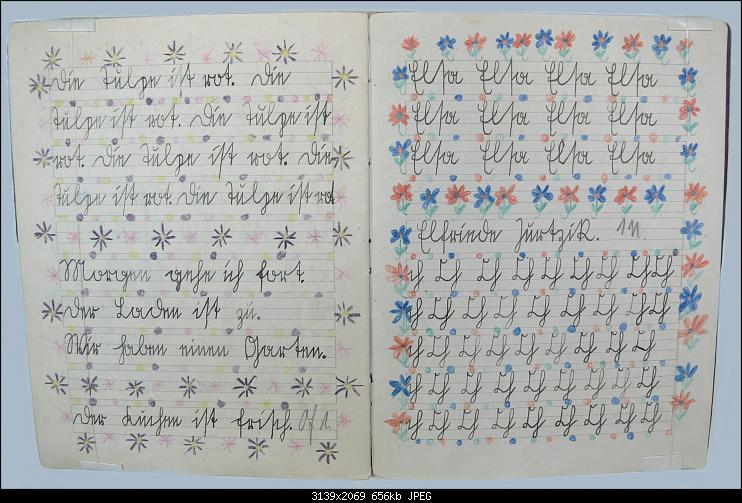 Die Tulpe ist rot. Die
Tulpe ist rot. Die Tulpe ist
rot. Die Tulpe ist rot. Die
Tulpe ist rot. Die Tulpe ist rot
Morgen gehe ich fort.
Der Laden ist zu.
Wir haben einen Garten.
Der Kuchen ist frisch.
Elsa Elsa Elsa Elsa
Elsa Elsa Elsa Elsa
Elsa Elsa Elsa Elsa
Elfriede Zurtzik.
Ch Ch Ch Ch Ch Ch Ch Ch Ch
Ch Ch Ch Ch Ch Ch Ch Ch Ch Ch
Ch Ch Ch Ch Ch Ch Ch Ch Ch
Ch Ch Ch Ch Ch Ch Ch Ch Ch
Ch Ch Ch Ch Ch Ch Ch Ch Ch
3139x2069 656kb JPEG